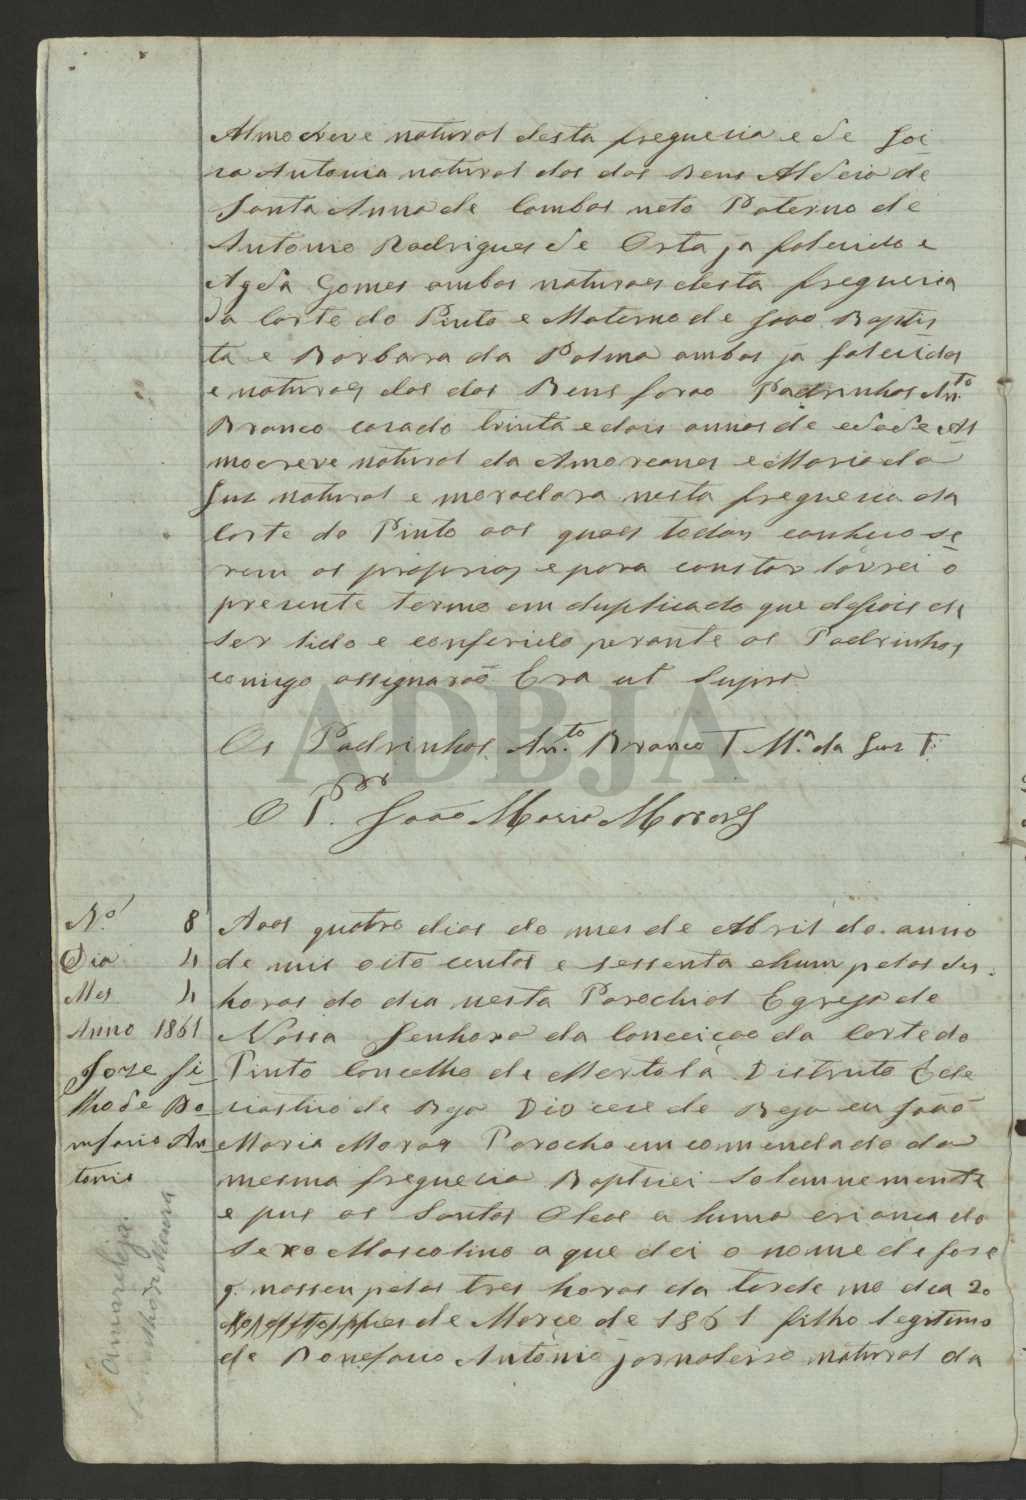 Almocreve natural desta freguezia e de Joi
na Antonia natural dos dos Bens Aldeia de
Santa Anna de Cambas neto Paterno de
Antonio Rodrigues de Orta ja falecido e
Agda Gomes ambos naturaes desta freguezia
da Corte do Pinto e Materno de João Baptis
ta e Barbara da Palma ambos ja falecidos
e naturaes dos dos Bens forão Padrinhos Anto
Branco casado trinta e dois annos de edade Al
mocreve natural da e Maria da
Luz natural e moradora nesta freguezia da
Corte do Pinto aos quaes todos conheco se
rem os proprios e para constar lavrei o
presente termo em duplicado que depois de
ser lido e conferido perante os Padrinhos
comigo assignarão Era ut supra
Os Padrinhos Anto Branco † Ma da Luz †
O P. João Maria Moraes
ADBJA
No 8
Dia 4
Mes 4
Anno 1861
Jose fi
lho de Bo
nifacio An
tonio
Amarelejo.
Aos quatro dias do mes de Abril do anno
de mil oito centos e sessenta e hum pelas des
horas do dia nesta Parochial Egreja de
Nossa Senhora da Conceicao da Corte do
Pinto Concelho de Mertola Distrito Ecle
siastico de Beja Diocese de Beja eu João
Maria Moraes Parocho emcomendado da
mesma freguezia Baptizei Solemnemente
e pus os Santos Oleos a huma crianca do
sexo Mascolino a que dei o nome de Jose
q. nasseu pelas tres horas da tarde no dia 20
de Março de 1861 filho legitimo
de Bonefacio Antonio jornaleiro natural da